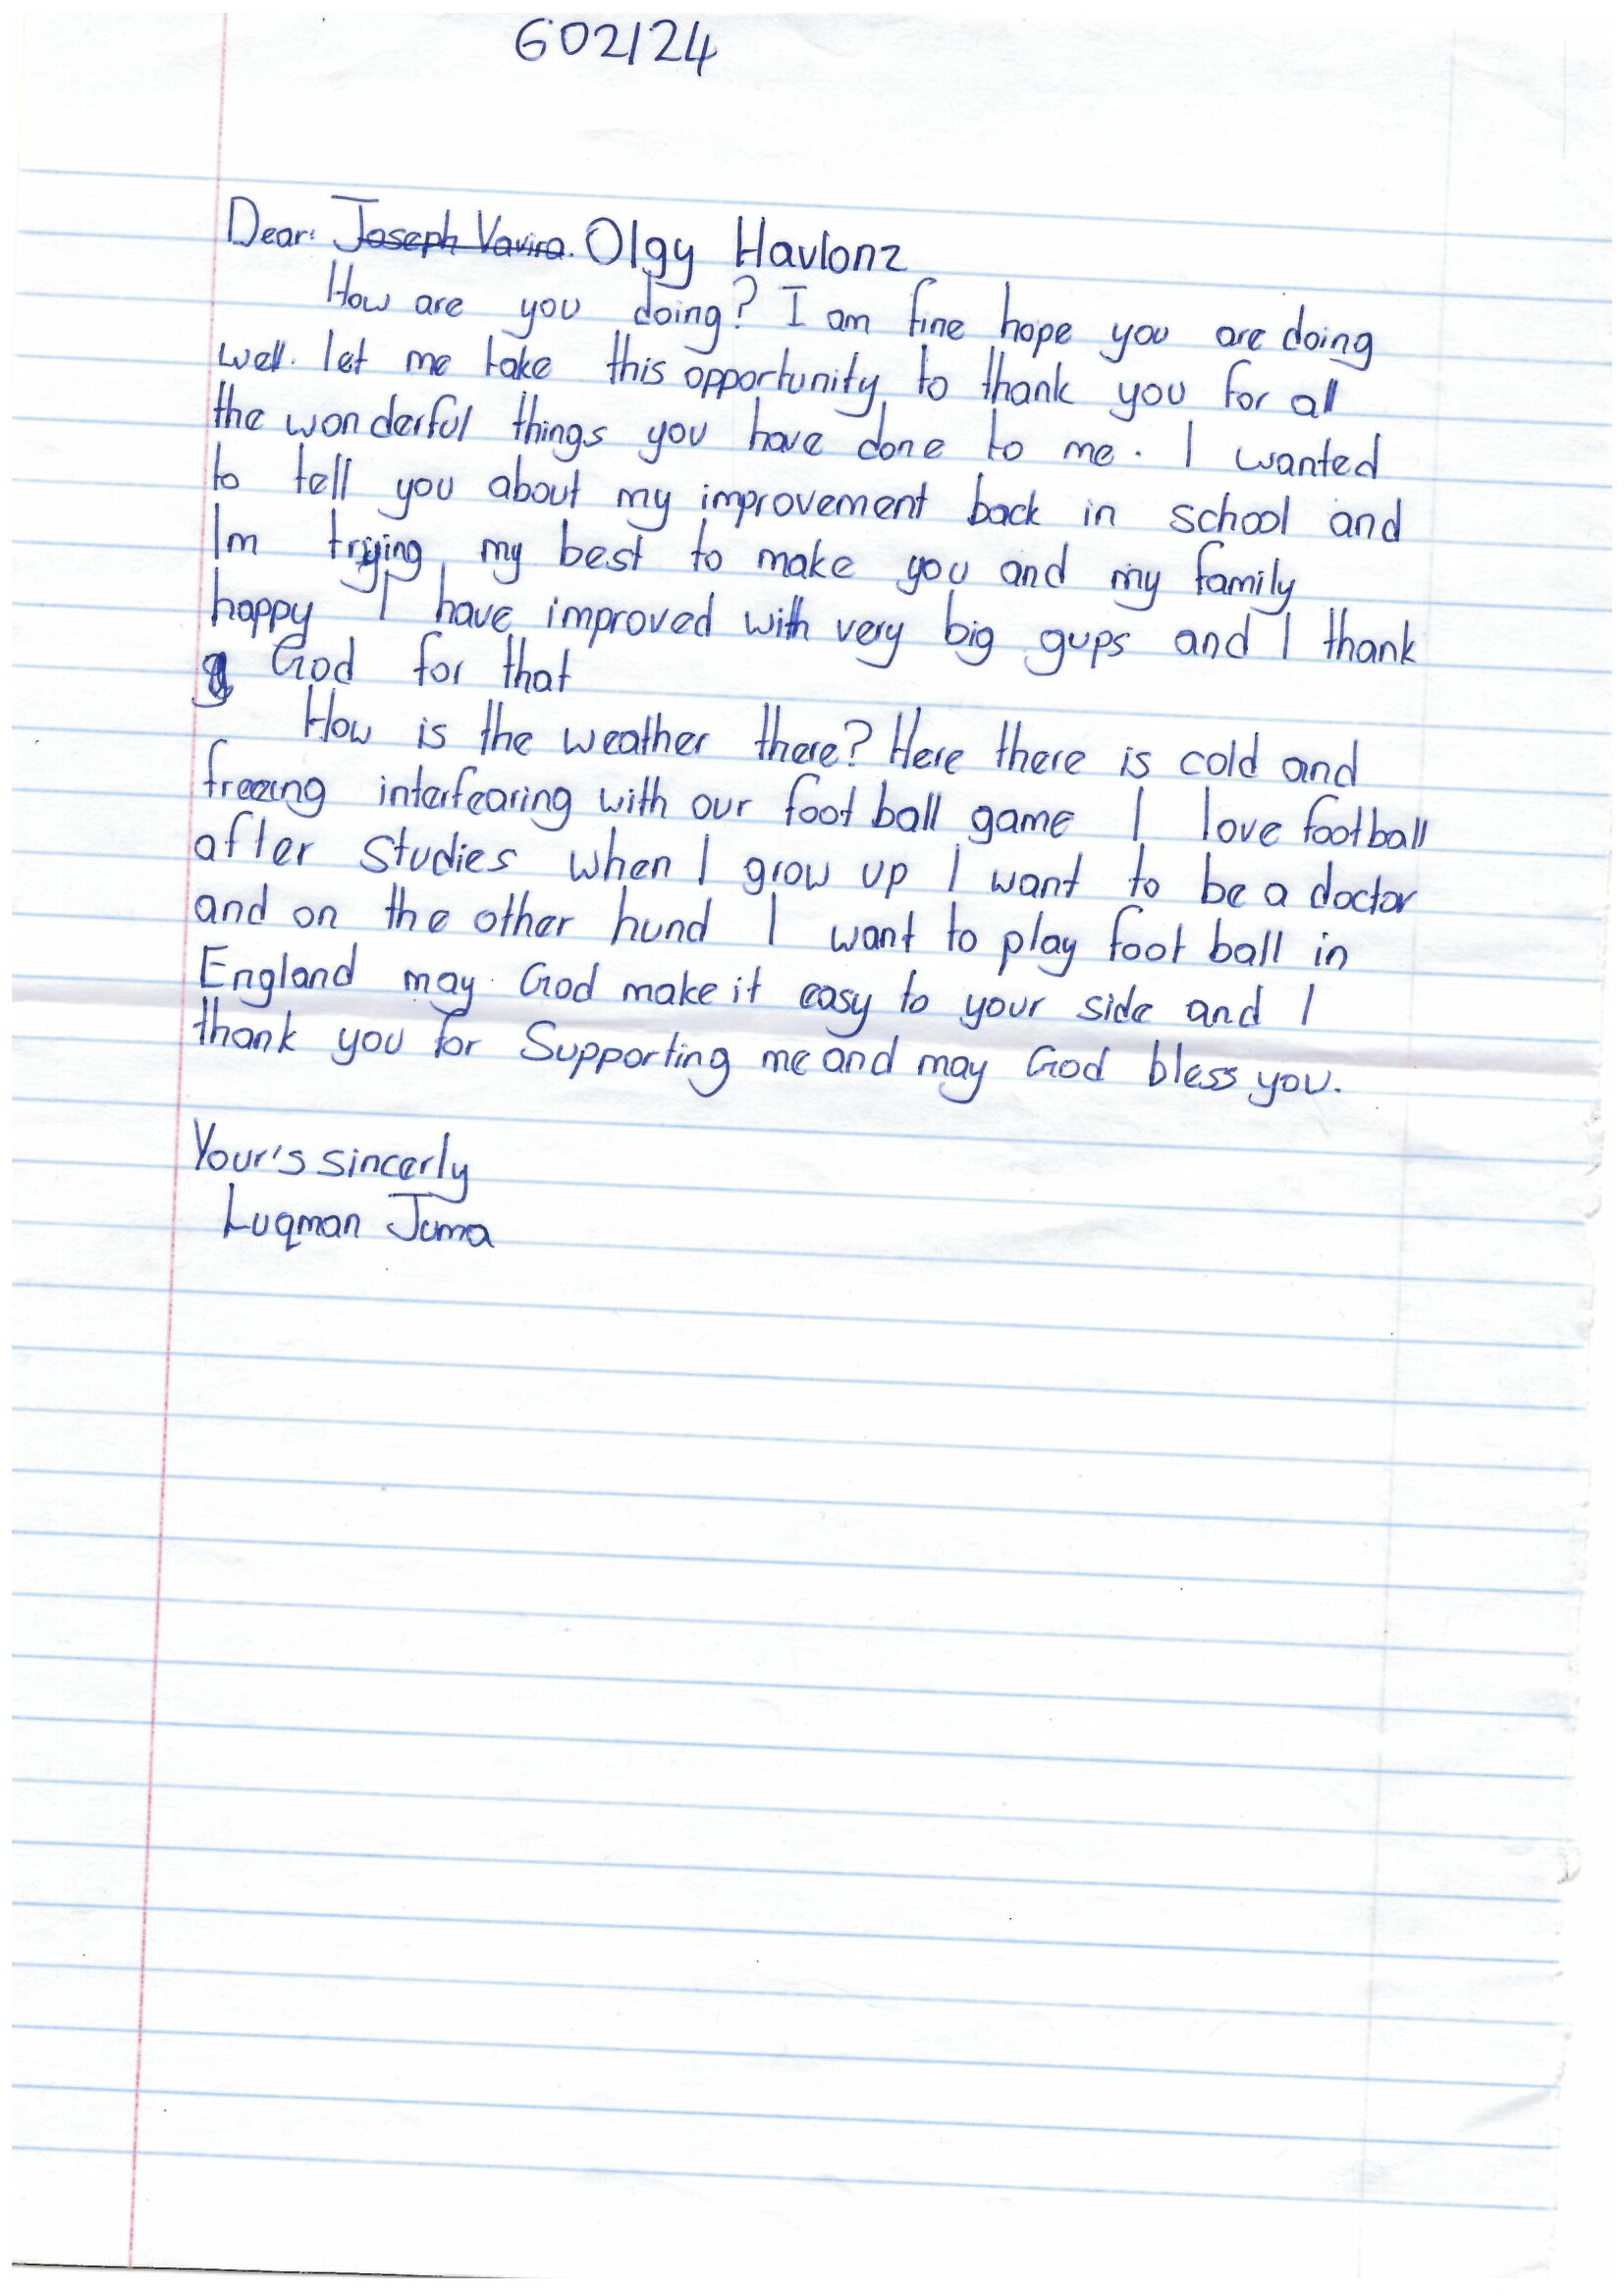 602/24
Dear: Joseph Vavira. Olgy Havlonz
How are you doing? I am fine hope you are doing
well. let me take this opportunity to thank you for all
the wonderful things you have done to me. I wanted
to tell you about my improvement back in school and
Im trying my best to make you and my family
happy I have improved with very big gups and I thank
God for that
How is the weather there? Here there is cold and
freezing interfearing with our foot ball game I love football
after studies when I grow up I want to be a doctor
and on the other hund I want to play foot ball in
England may God make it easy to your side and I
thank you for Supporting me and may God bless you.
Your's sincerly
Luqman Juma